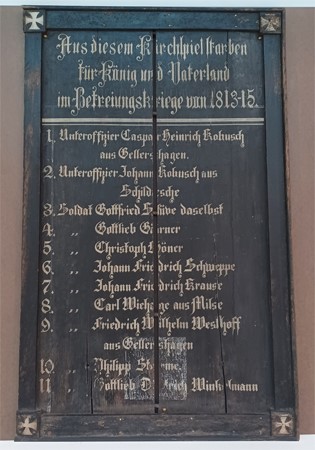 Aus diesem Kirchspiel starben
für König und Vaterland
im Befreiungskriege von 1813-15.
1. Unteroffizier Caspar Heinrich Kobusch
aus Gellershagen.
2. Unteroffizier Johann Kobusch aus
Schildesche
3. Soldat Gottfried daselbst
4. „ Gottlieb
5. „ Christoph
6. „ Johann Friedrich Schweppe
7. „ Johann Friedrich Krause
8. „ Carl aus Milse
9. „ Friedrich Wilhelm Westhoff
aus Gellershagen
10. „ Philipp
11. „ Gottlieb Winkelmann